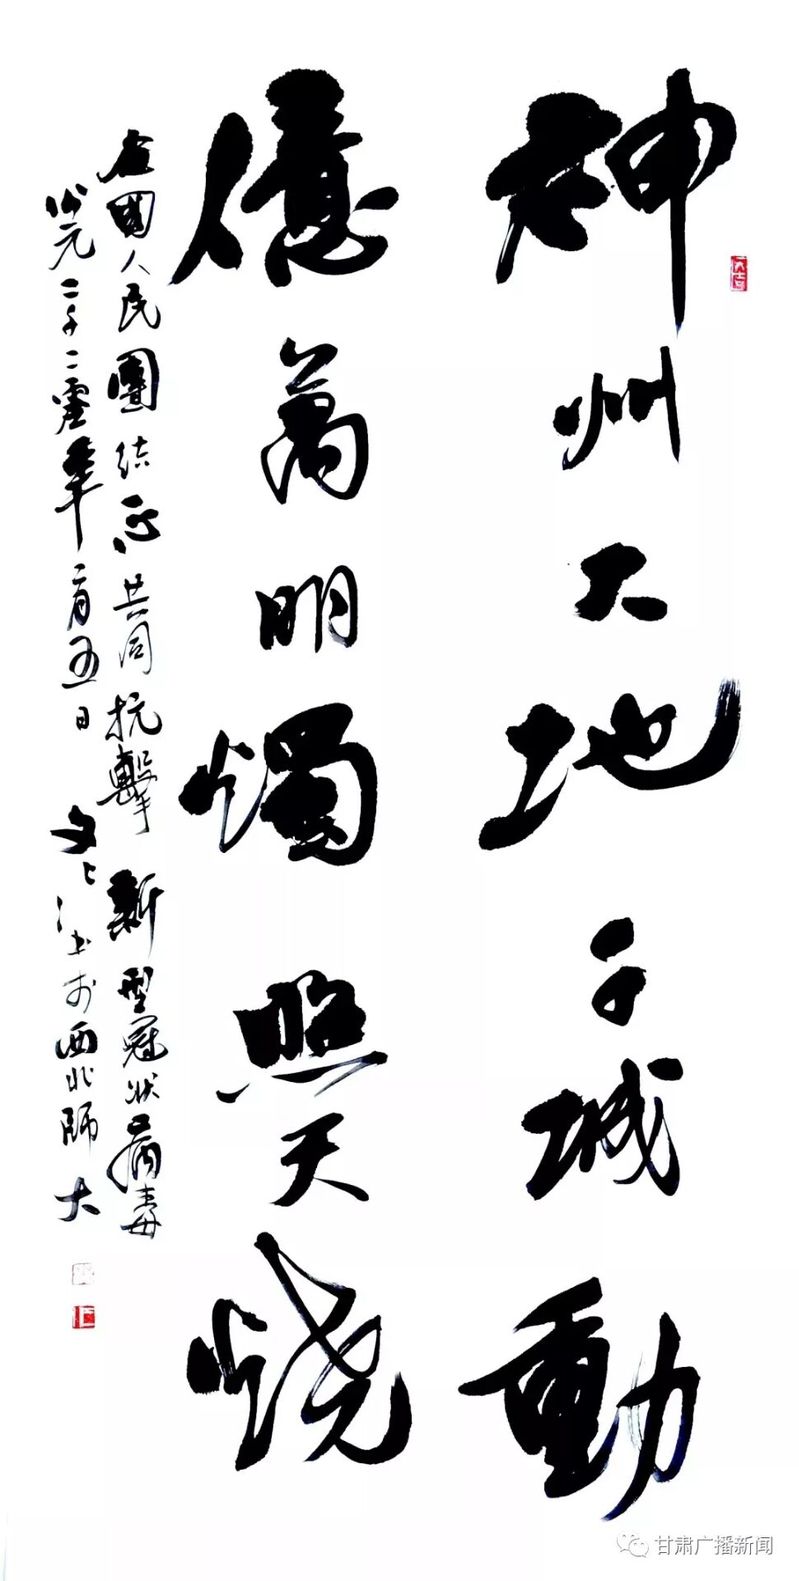 神州大地千城動
億萬明燭照天燒
全國人民團結一心共同抗擊新型冠狀病毒
公元二千二零年二月五日
書於西北師大
甘肃广播新闻